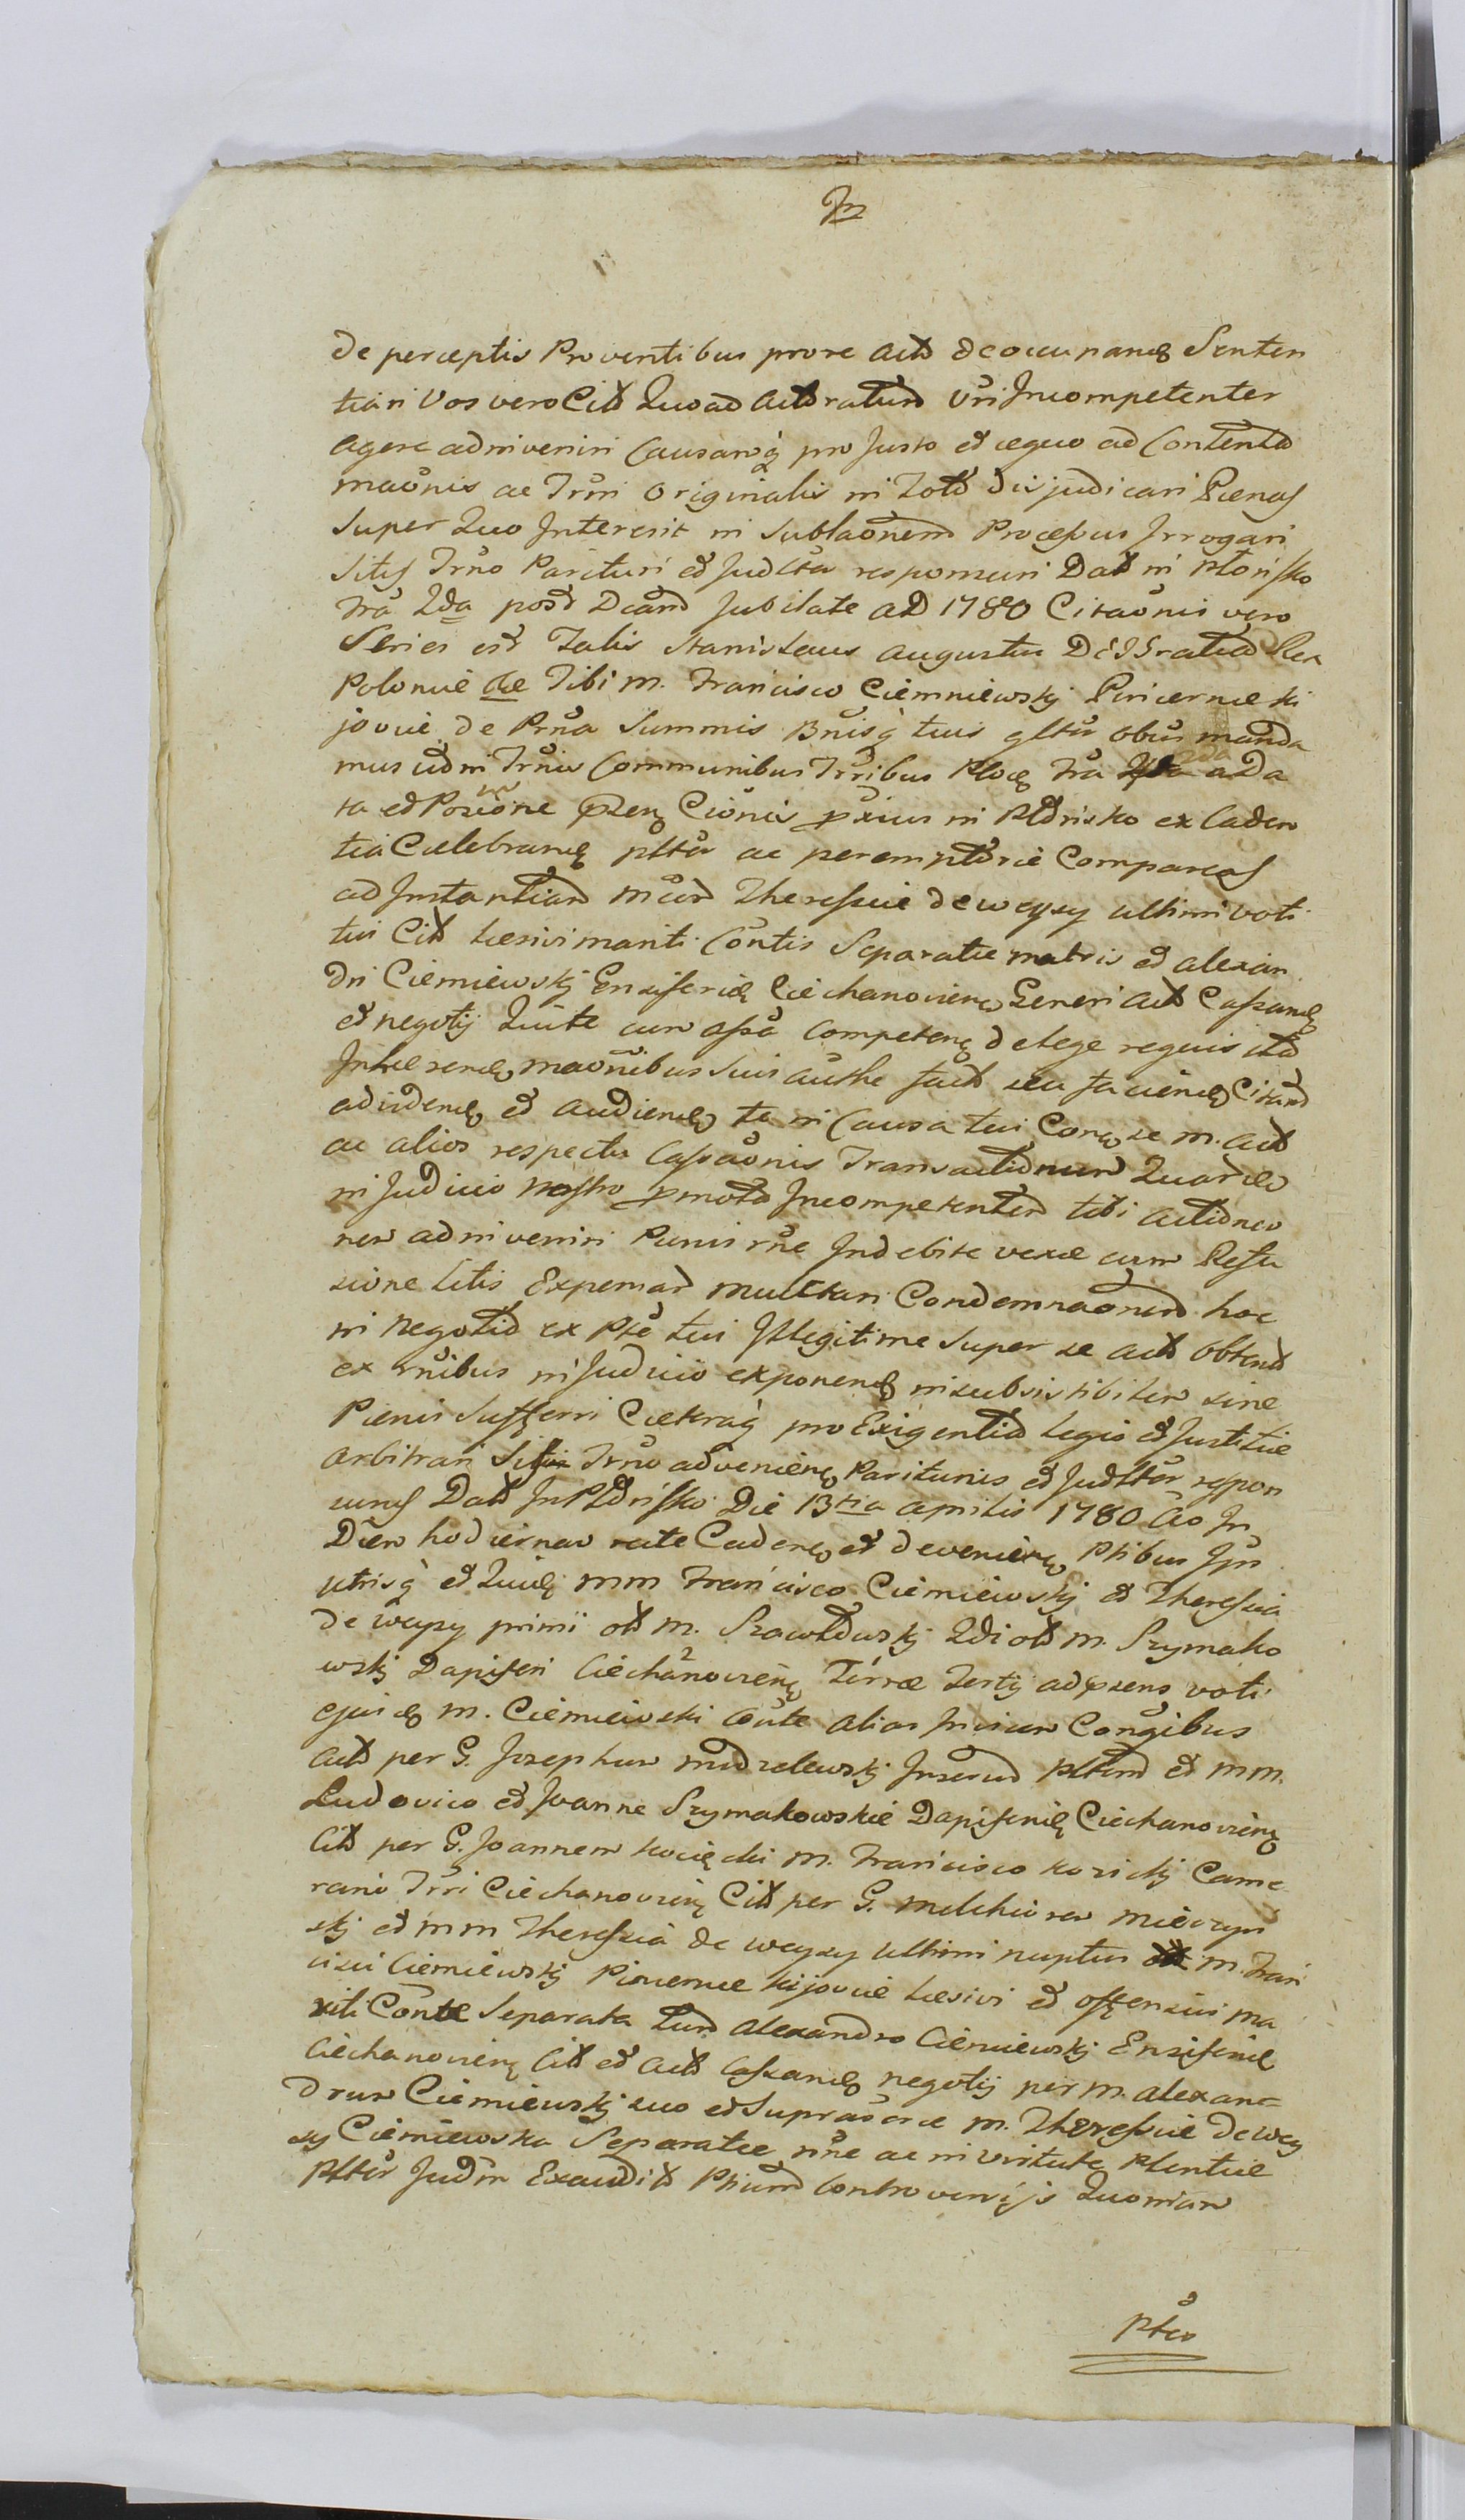 de perceptis Proventibus prore actō deoccupandę Senten
tiari Vos vero Citō Quoad actoratum vri Incompetenter
agere adinveniri Causamq̀ pro Justo et aequo ad Contenta
maōnis ac Trmi Originalis in Toto dijudicari Poenas
Super Quo Intererit in Sublaōnem Processus Irrogari
Sitis Trno Parituri et Judltr responsuri Dat in Płońsko
fra 2da post Dcam Jubilate AD 1780 Citaōnis vero
Series est Talis Stanislaus Augustus DEI Gratia Rex
Poloniae &c Tibi M. Francisco Ciemniewskj Pincernae ki
joviae de Prna Summis Bnisq̀ tuis gltr obus manda
mus ut in Trnis Communibus Trribus Ploc fra 2da a Da
ta et Pozione Przen Ciōnis pxius in Płońsko ex Caden
tia Celebrandę pltr ac peremptorie Compareas
ad Instantiam Mcar Theressiae de Węzy ultimi voti
tui Cit Laesivi mariti Contis Separatae matris et Alexan
dri Ciemiewskj Ensiferidę Ciechanovienę Generi act Cassandę
et negotij Quite cum assa Competenę de lege requisita
Inhaerendę maōnibus suis authe fact seu faciendę Citand
ad videndę et audiendę te in Causa tui Corę se M. act
ac alios respectu Cassaōnis Transactionum Quarde
in Judicio Nostro pmota Incompetentem tibi actione
nem adinveniri Poenis rne Indebitae vexae cum Refu
sione Litis Expensar mulctari Condemnaonem hoc
in Negotio ex Pte tui Illegitime super se act obtent
ex rnibus in Judicio exponendę insubsistibilem sine
Poenis Sufferri Caetraq̀ pro Exigentia Legis et Justitiae
arbitrari Trno advenienę Pariturus et Judltr respon
surus Dat In Płońsko Die 13tia Aprilis 1780 Ao In
Diem hodiernam rate Cadenę et devenienę Ptibus Ipis
utrisq̀ et Quidę MM Francisco Ciemiewskj et Theressia
de Węzy primi ot M. Szawłowskj 2di ot M. Szymako
wskj Dapiferi Ciechanovienę Terrae Tertij ad psens voti
ejusdę M. Ciemiewski Conte alias Invicem Congibus
act per G. Josephum Modzelewskj Juratum Pltum et MM.
Ludovico et Joanne Szymakowskie Dapiferidę Ciechanovienę
Cit per G. Joannem Kocięcki M. Francisco Kozickj Came
rario Trri Ciechanovienę Cit per G. Melchiorem Mieczyń
skj et MM Theressia de Węzy ultimi nuptus M. Fran
cisci Ciemiewskj Pincernae Kijoviae Laesivi et offensivi ma
riti Conte Separata Tum Alexandro Ciemiewskj Ensiferidę
Ciechanovienę Cit et act Cassandę negotij per M. Alexan
drum Ciemiewskj suo et Suprascrae M. Theressiae de Wę
zy Ciemiewska Separatae nne ac in Virtute Pltentiae
Pltr Judm Exaudit Ptium Controversijs Quoniam
Ptes